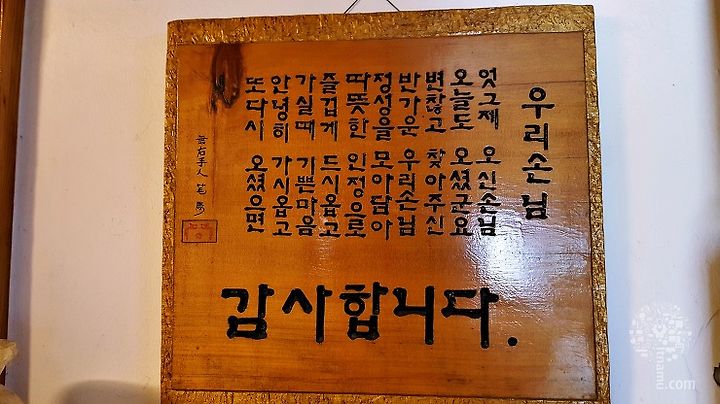 우리손님
엇그제 오신손님
오늘도 오셨군요
변찮고 찾아주신
반가운 우리손님
정성을 모아담아
따뜻한 인정으로
즐겁게 드시옵고
가실때 기쁜마음
안녕히 가시옵고
또다시 오셨으면
右手人
감사합니다.